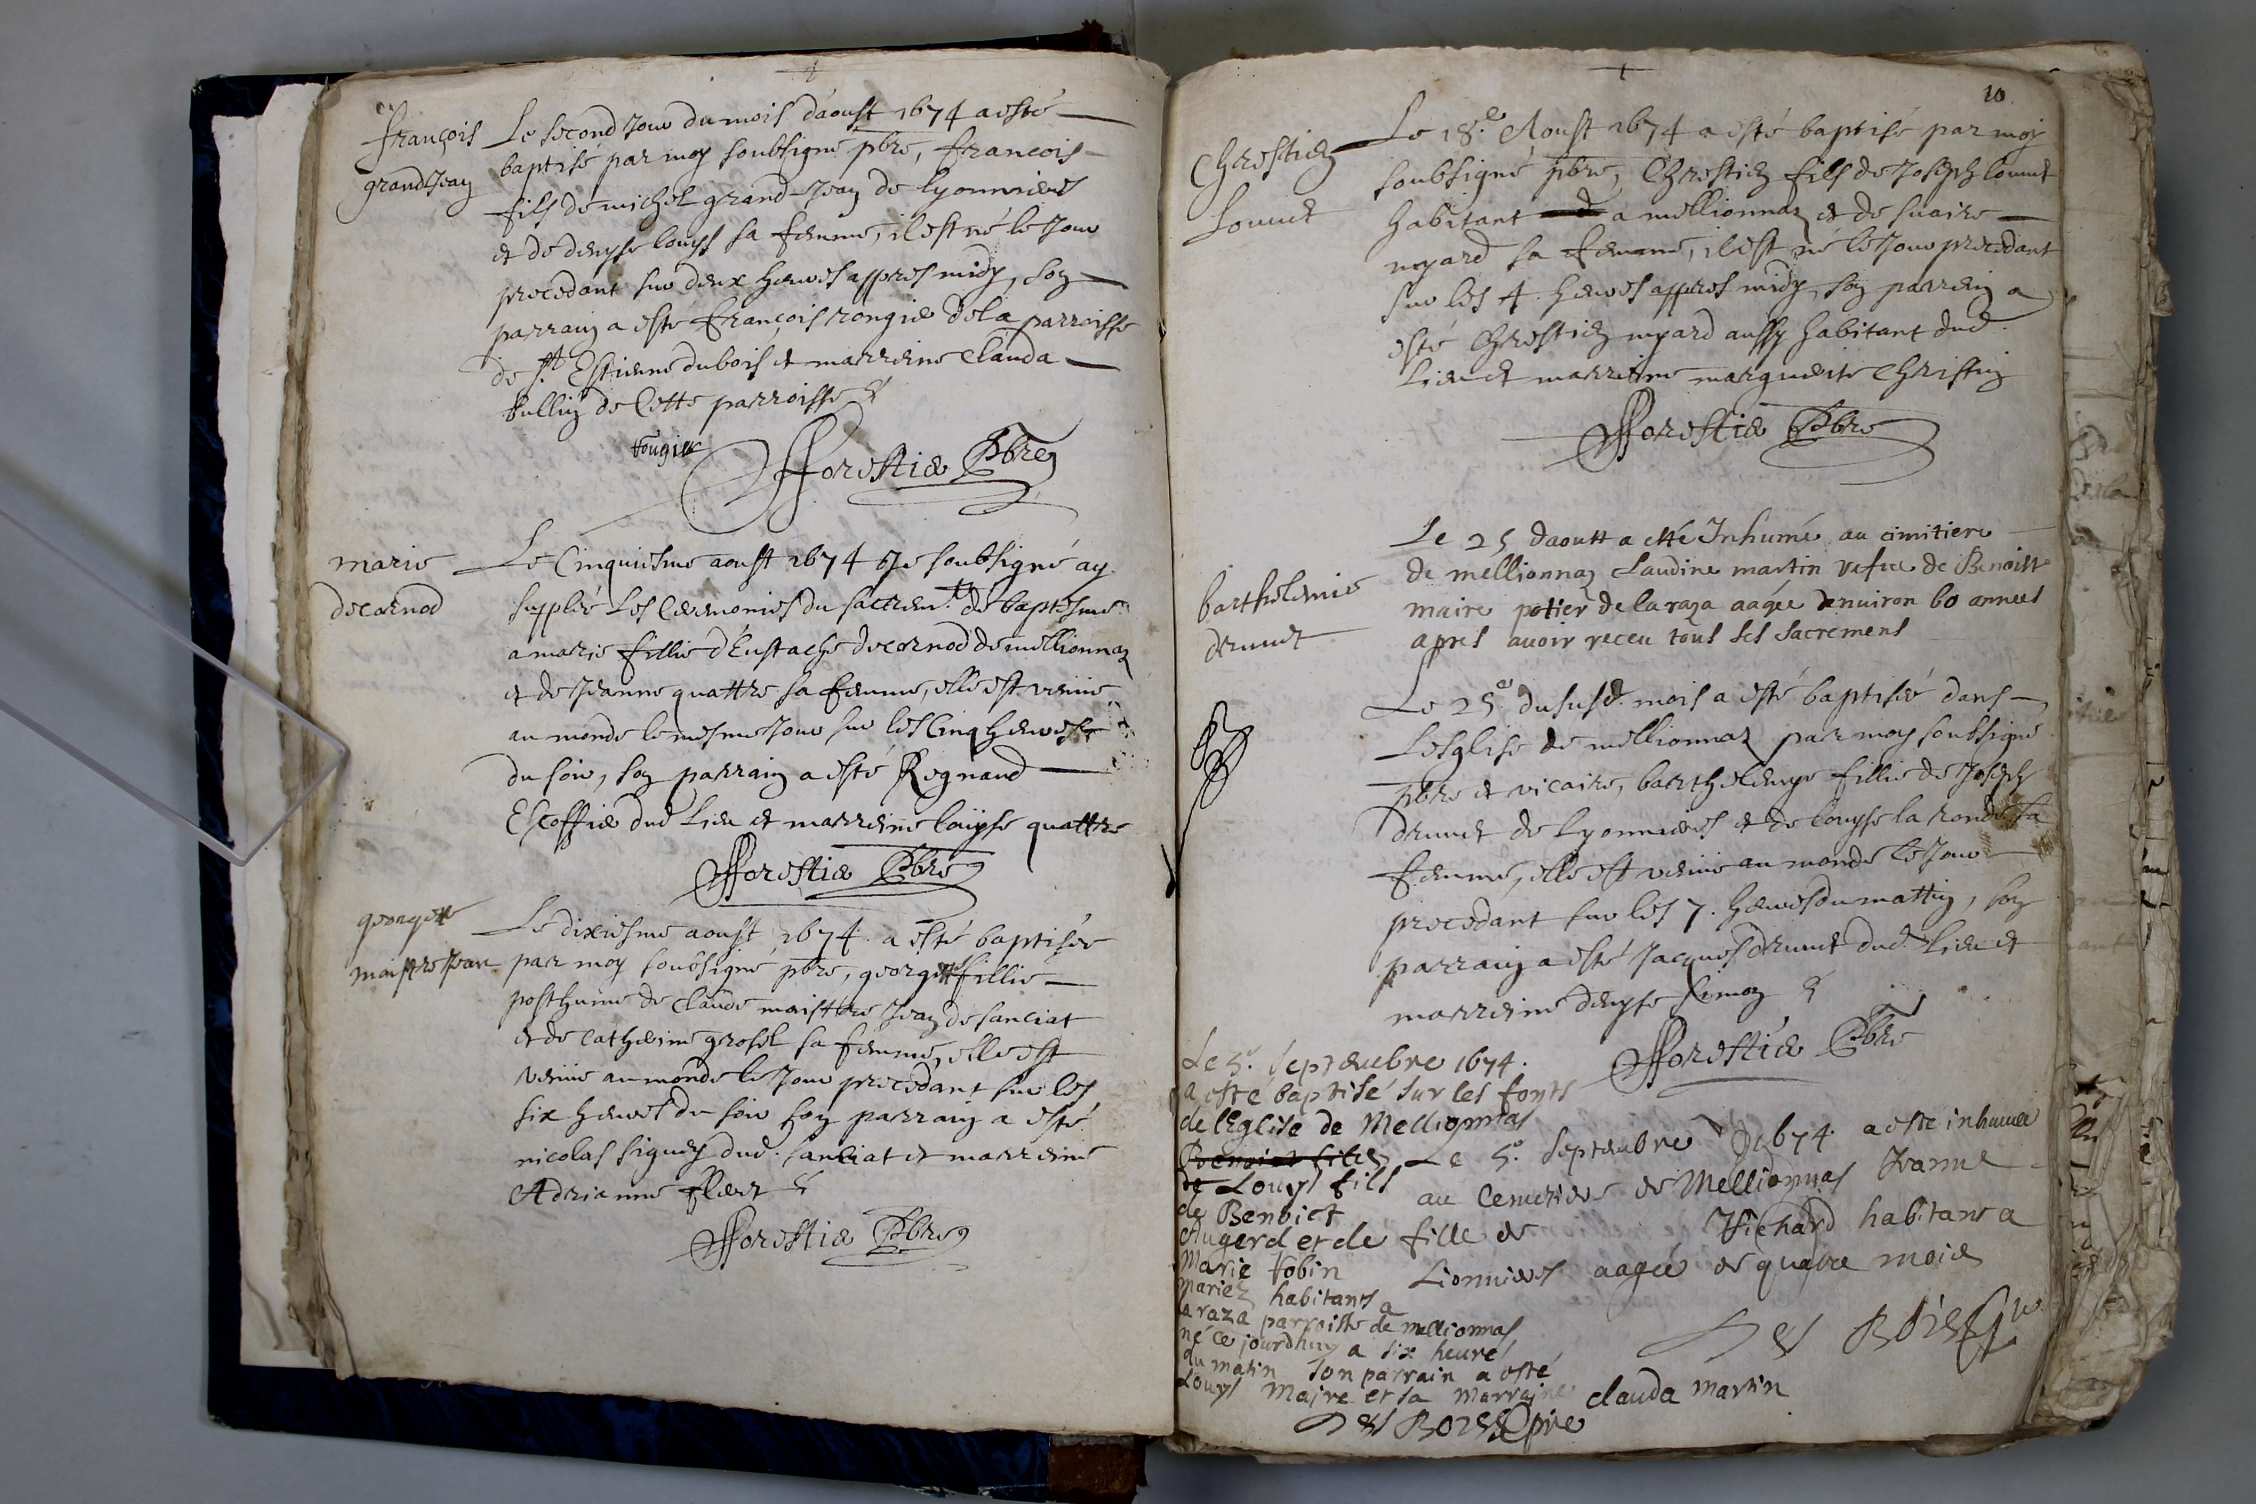 françois
grandJean
Le second Jour du mois d'aoust 1674 a esté
baptisé par moy soubsigné pbre, françois
fils de michel grand-Jean de lyonnieres
et de denyse louys sa femme, il est né le Jour
precedant sur deux heures appres midy, son
parrain a esté françois rongier de la parroisse
de st Estienne du bois et marreine Clauda
bullin de Cette parroisse
fforestier Pbre
marie
decornod
Le Cinquiesme aoust 1674 Je soubsigné ay
supplée Les Ceremonies du sacrem.t de baptesme
a marie fillie d'Eustache decornod de mellionnaz
et de Jeanne quattre sa femme, elle est venüe
au monde le mesme Jour sur les Cinq heures
du soir, son parrain a esté Regnaud
Escoffier dud Lieu et marreine loüyse quattre
fforestier Pbre
georgette
maistre Jean
Le dixiesme aoust 1674 a esté baptisée
par moy soubsigné pbre, georgette fillie
posthume de Claude maistre Jean de sanciat
et de Catherine grosel sa femme, elle est
venüe au monde le Jour precedant sur les
six heures du soir son parrain a esté
nicolas siguey dud. sanciat et marreine
Adrianne
fforestier Pbre
10
Chrestien
Louuet
Le 18.e Aoust 1674 a esté baptisé par moy
soubsigné pbre, Chrestien fils de Joseph louuet
habitant a mellionnaz et de
myard sa femme, il est né le Jour precedant
sur les 4. heures appres midy, son parrein a
esté Chrestien myard aussy habitant dud.
Lieu et marreine marguerite Christin
fforestier Pbre
Le 25 daoutt a etté Inhumé au cimitiere
de mellionnaz Claudine martin vefue de Benoist
maire potier de la raza aagée denuiron 60 annees
apres auoir receu tous ses sacremens
barthelemie
druuet
Le 25.e du susd. mois a esté baptisée dans
Lesglise de mellionnaz par moy soubsigné
pbre et vicaire, barthelemye fillie de Joseph
druuet de Lyonnieres et de louyse la ronde sa
femme, elle est venüe au monde le Jour
precedant sur les 7. heures du mattin, son
parrain a esté Jacques druuet dud. Lieu et
marreine denyse simon
fforestier Pbre
Le 5.e septembre 1674.
a esté baptisé sur les fonts
de lEglise de Mellionnas
Benoict fils
de Louys fils
de Benoict
Augerd et de
Marie Tobin
mariez habitans a
la raza parroisse de mellionnas
né ce jourdhuy a six heures
du matin son parrain a esté
Louys Maire et sa Marraine clauda martin
Des Bois pre
Le 5.e septembre 1674 a este inhumee
au Cemetiere de Mellionnas Jeanne
fille de Vichard habitans a
Lionnieres aagée de quatre mois
Des Bois